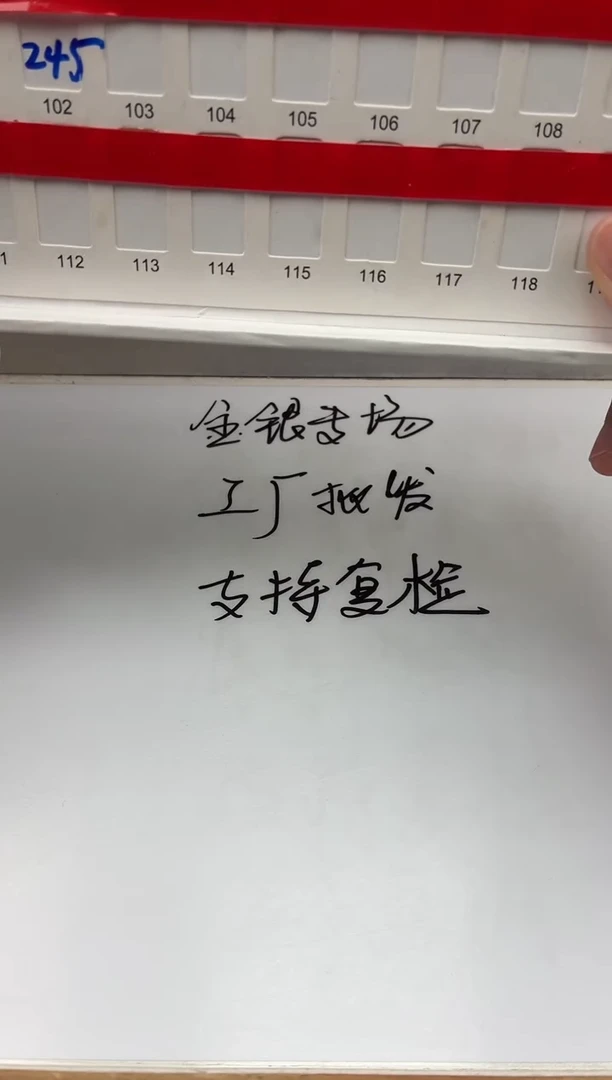 245
102 103 104 105 106 107 108
112 113 114 115 116 117 118
金银专场
工厂批发
支持复检